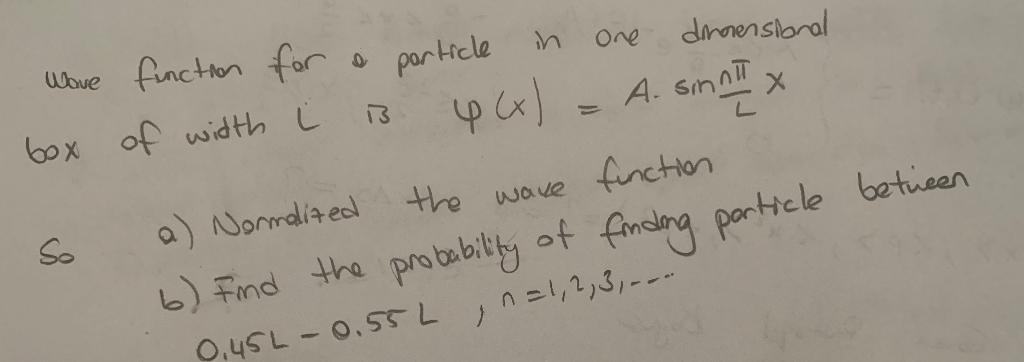 Wave function for a particle in one dimensional
box of width L is φ(x) = A. sin nπ/L x
So a) Normalized the wave function
b) Find the probability of finding particle between
0.45L - 0.55L , n=1,2,3,---